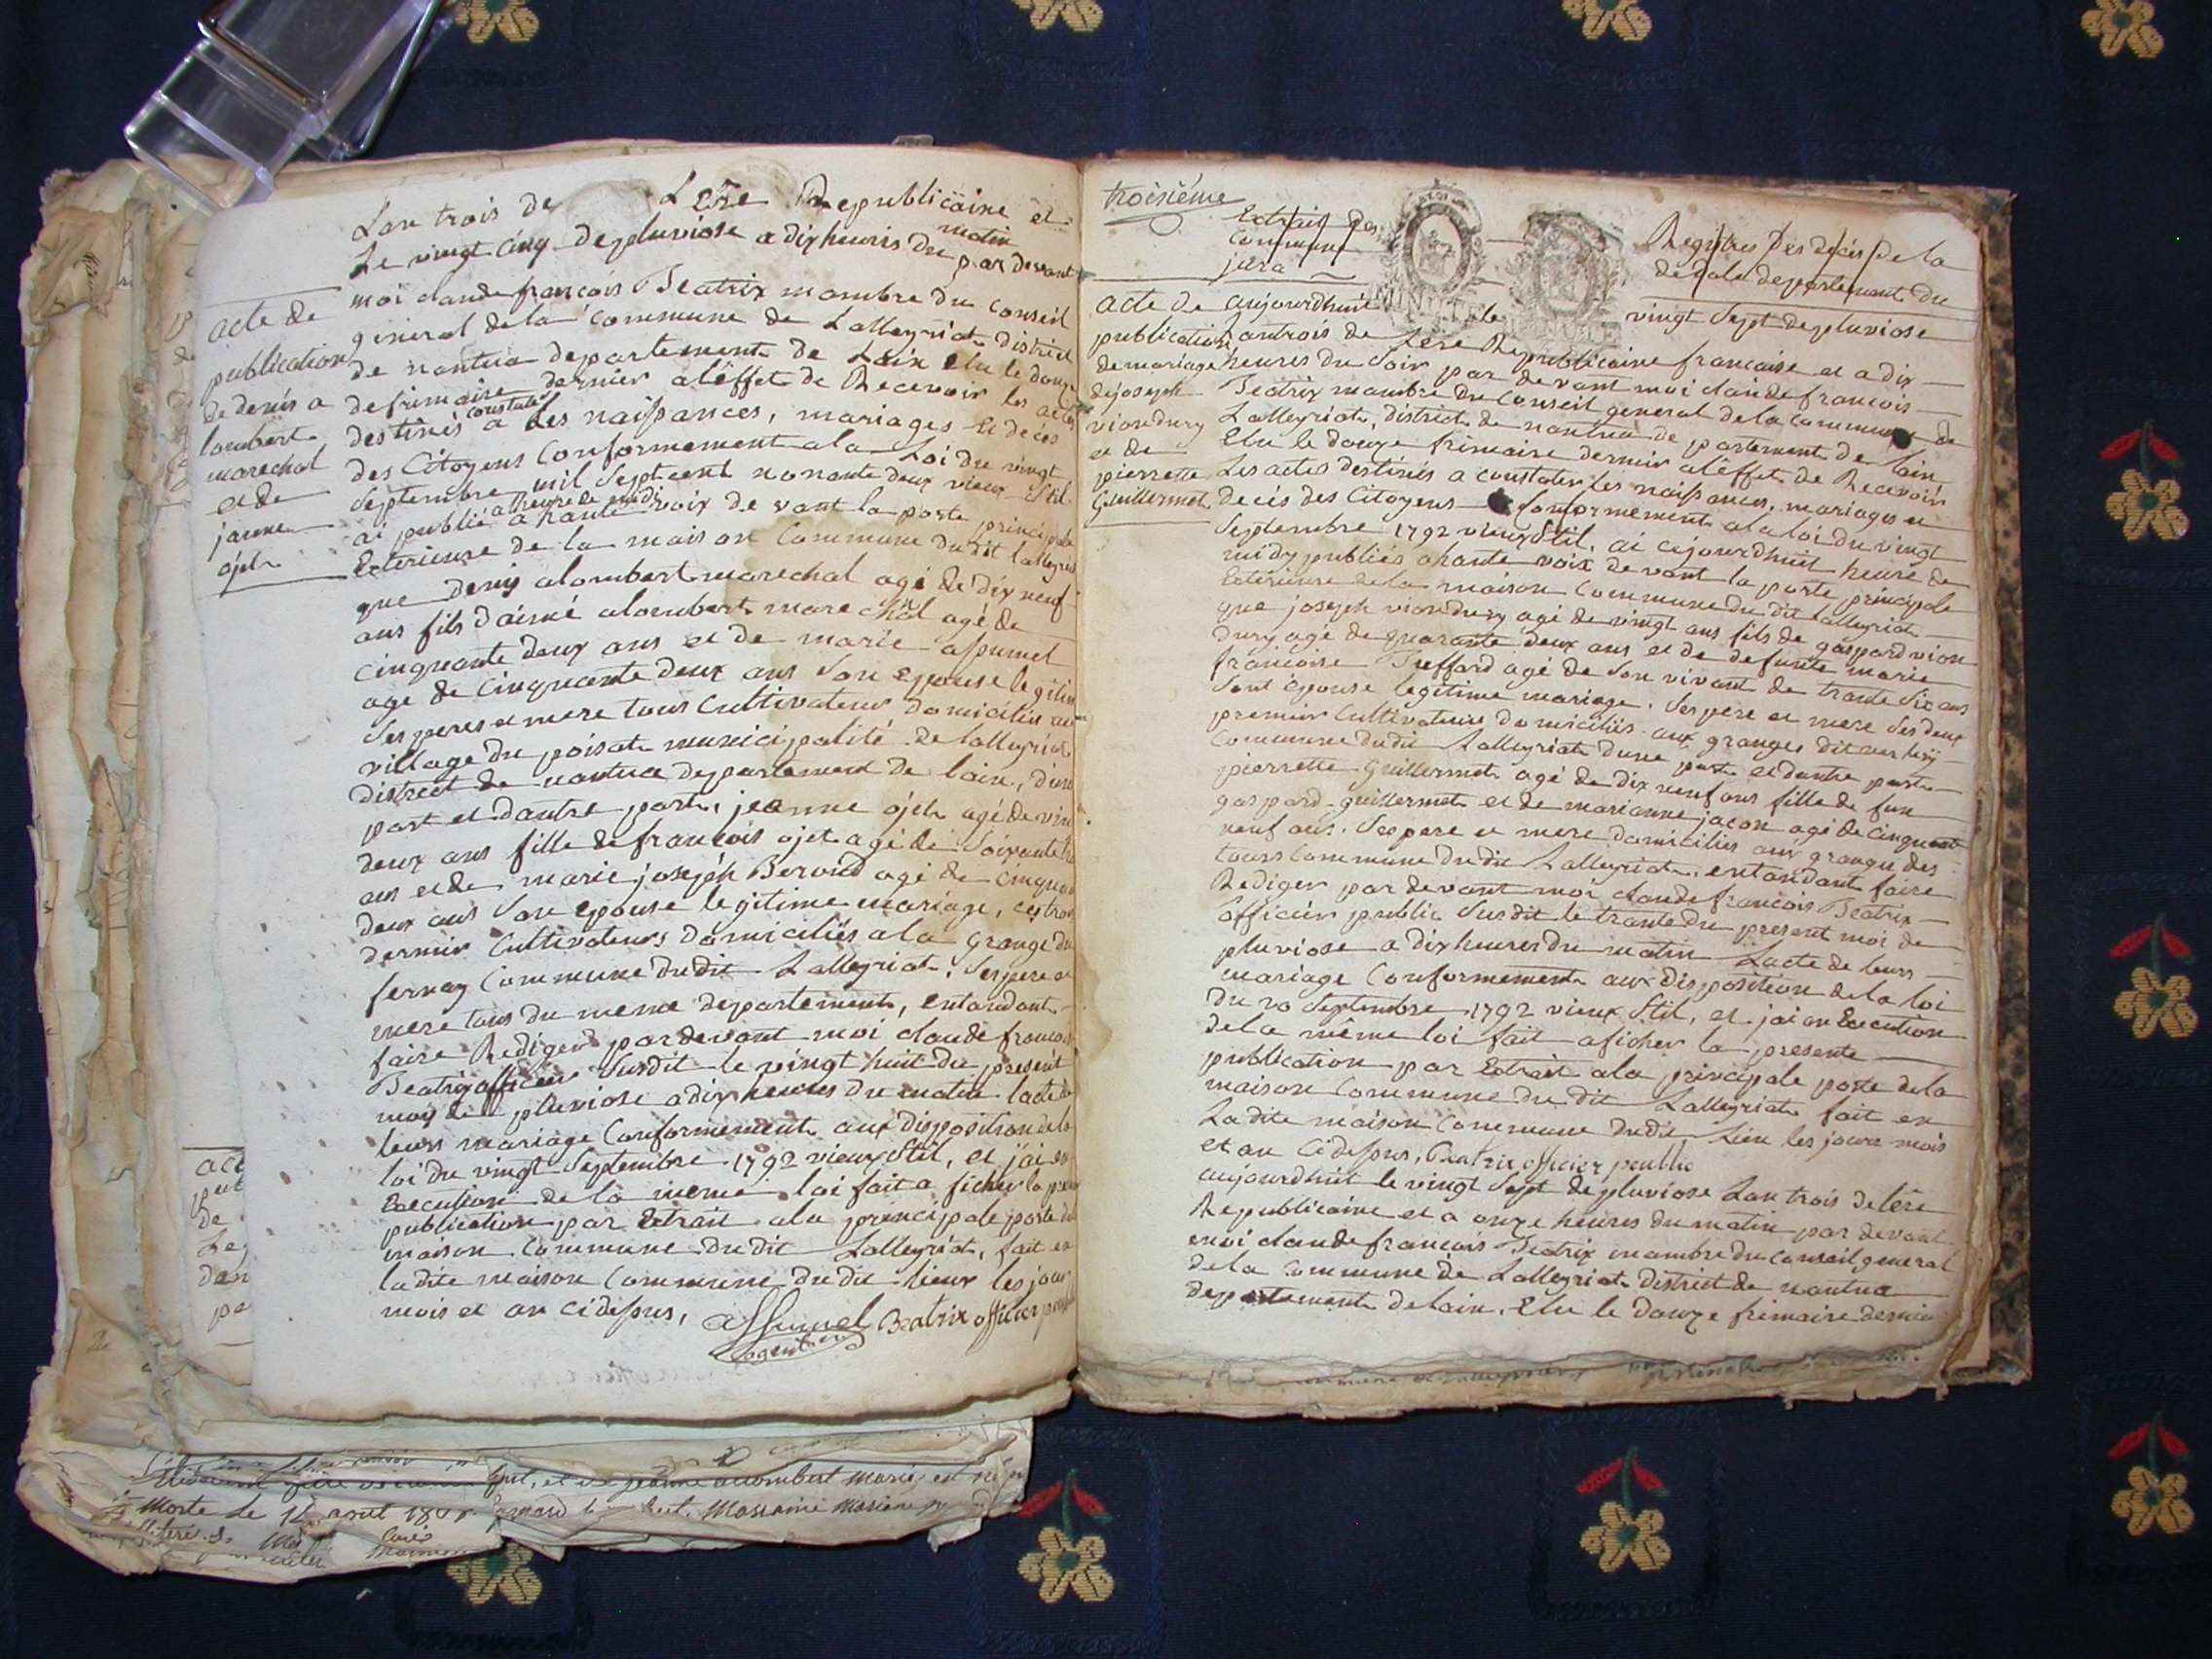 Lan trois de Lere Republicaine et
Le vingt cinq depluviose a dix heures du matin par devant
moi claude francois Beatrix mambre du conseil
general de la commune de Lalleyriat district
de nantua departement de Lain elu le douze
defrimaire dernier aléffet de Recevoir les actes
destinés a constater les naissances, mariages et décés
des Citoyens Conformement ala Loi du vingt
Septembre mil Septcent nonante deux vieux Stil
ai publié a heure de midi a haute voix de vant la porte principale
Exterieure de la maison Commune dudit lalleyriat
que denis alombert marechal agé de dix neuf
ans fils daimé alombert marechal agé de
cinquante deux ans et de marie assumel
age de cinquante deux ans Son epouse legitime
Ses peres et mere tous Cultivateur domicilies au
village du poisat municipalité de lalleyriat
district de nantua departement de lain, dune
part et dautre part, jeanne ojet agé de vint
deux ans fille de francois ojet agé de Soixante
ans et de marie joseph Berond agé de cinquante
deux ans Son epouse legitime mariage, ces trois
dernier Cultivateurs domiciliés a la grange du
fernay Commune dudit Lalleyriat, Ses pere et
mere tous du meme departement, entandant
faire Rediger pardevant moi claude francois
Beatrix officier Susdit le vingt huit du present
mois de pluviose a dix heures du matin lacte de
leurs mariage Conformement aux disposition de la
loi du vingt Septembre 1792 vieux Stil, et jai en
Execution de la meme loi fait aficher la presente
publication par Extrait ala principale porte de la
maison Commune dudit Lalleyriat, fait en
ladite maison Commune dudit lieux les jour
mois et an cidessus, aSSumel Beatrix officier public
agent
acte de
publication
de denis a
lombert
marechal
et de
jeanne
ojet
act
pub
de
Le
den
pe
Morte le 12 aout 180
troisiéme
Extrait des Registres des décés de la
Commune de dole departement du
jura
acte de
publication
demariage
dejoseph
viondury
et de
pierrette
Guillermet
aujourdhuit le vingt Sept depluviose
lantrois de Lere Republicaine francaise et a dix
heures du Soir par de vant moi claude francois
Beatrix mambre du Conseil general de la commune de
Lalleyriat, district de nantua de partement de lain
Elu le douze frimaire dernier aléffet de Recevoir
Les actes destinés a constater les naissances, mariages et
decés des Citoyens Conformement ala loi du vingt
Septembre 1792 vieux Stil, ai cejourdhuit heure de
midy publiés ahaute voix de vant la porte principale
Exterieure de la maison Commune du dit lalleyriat
que joseph viondury agé de vingt ans fils de gaspard vion
dury agé de quarante deux ans et de defunte marie
francoise Tueffard agé de Son vivant de trante Six ans
Sont épouse legitime mariage, Ses pere et mere Ses deux
premier Cultivateurs domiciliés aux granges dit
Commune du dit Lalleyriat dune part et dautre part
pierrette Guillermet agé de dix neuf ans fille de feu
gaspard guillermet et de marianne jacon agé de cinquante
neuf ans. Ses pere et mere domiciliés aux grange des
tours Commune du dit Lalleyriat, entandant faire
Rediger par devant moi claude francois Beatrix
officier public Susdit le trante du present moi de
pluviose a dix heures du matin Lacte de leurs
mariage Conformement aux disposition de la loi
du 20 Septembre 1792 vieux Stil, et jai en Execution
dela même loi fait aficher la presente
publication par Extrait ala principale porte dela
maison Commune du dit Lalleyriat fait en
La dite maison Commune dudit Lieu les jour mois
et an cidessus, Beatrix officier public
aujourdhuit le vingt Sept depluviose Lan trois de lére
Republicaine et a onze heures du matin par devant
moi claude francois Beatrix mambre du Conseil general
dela Commune de Lalleyriat district de nantua
departement de lain, Elu le douze frimaire dernier